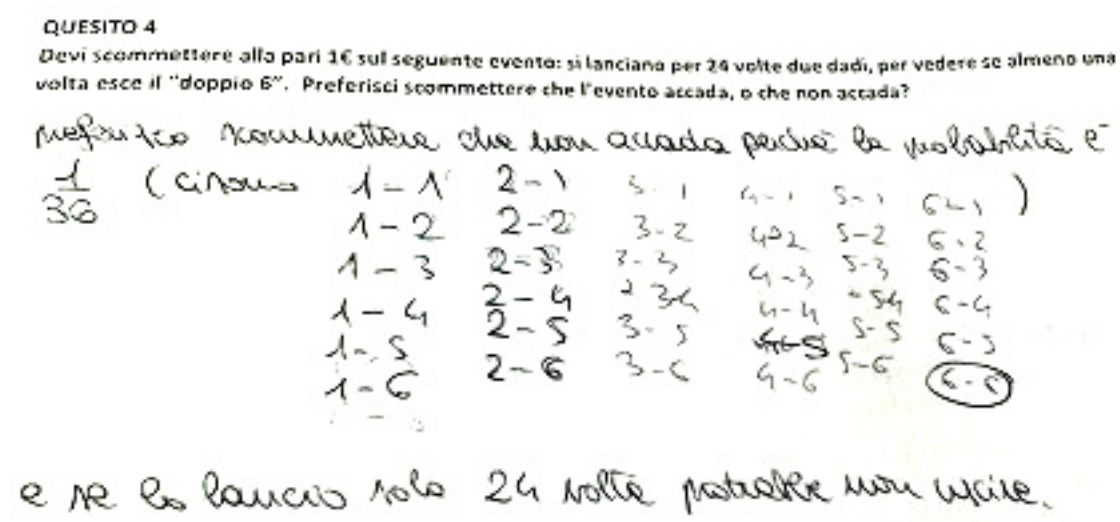 QUESITO 4
Devi scommettere alla pari 1€ sul seguente evento: si lanciano per 24 volte due dadi, per vedere se almeno una
volta esce il "doppio 6". Preferisci scommettere che l'evento accada, o che non accada?
preferisco scommettere che non accada perché la probabilità è
1/36 (ci sono 1-1 2-1 3-1 4-1 5-1 6-1 )
1-2 2-2 3-2 4-2 5-2 6-2
1-3 2-3 3-3 4-3 5-3 6-3
1-4 2-4 3-4 4-4 5-4 6-4
1-5 2-5 3-5 4-5 5-5 6-5
1-6 2-6 3-6 4-6 5-6 6-6
e se lo lancio solo 24 volte potrebbe non uscire.